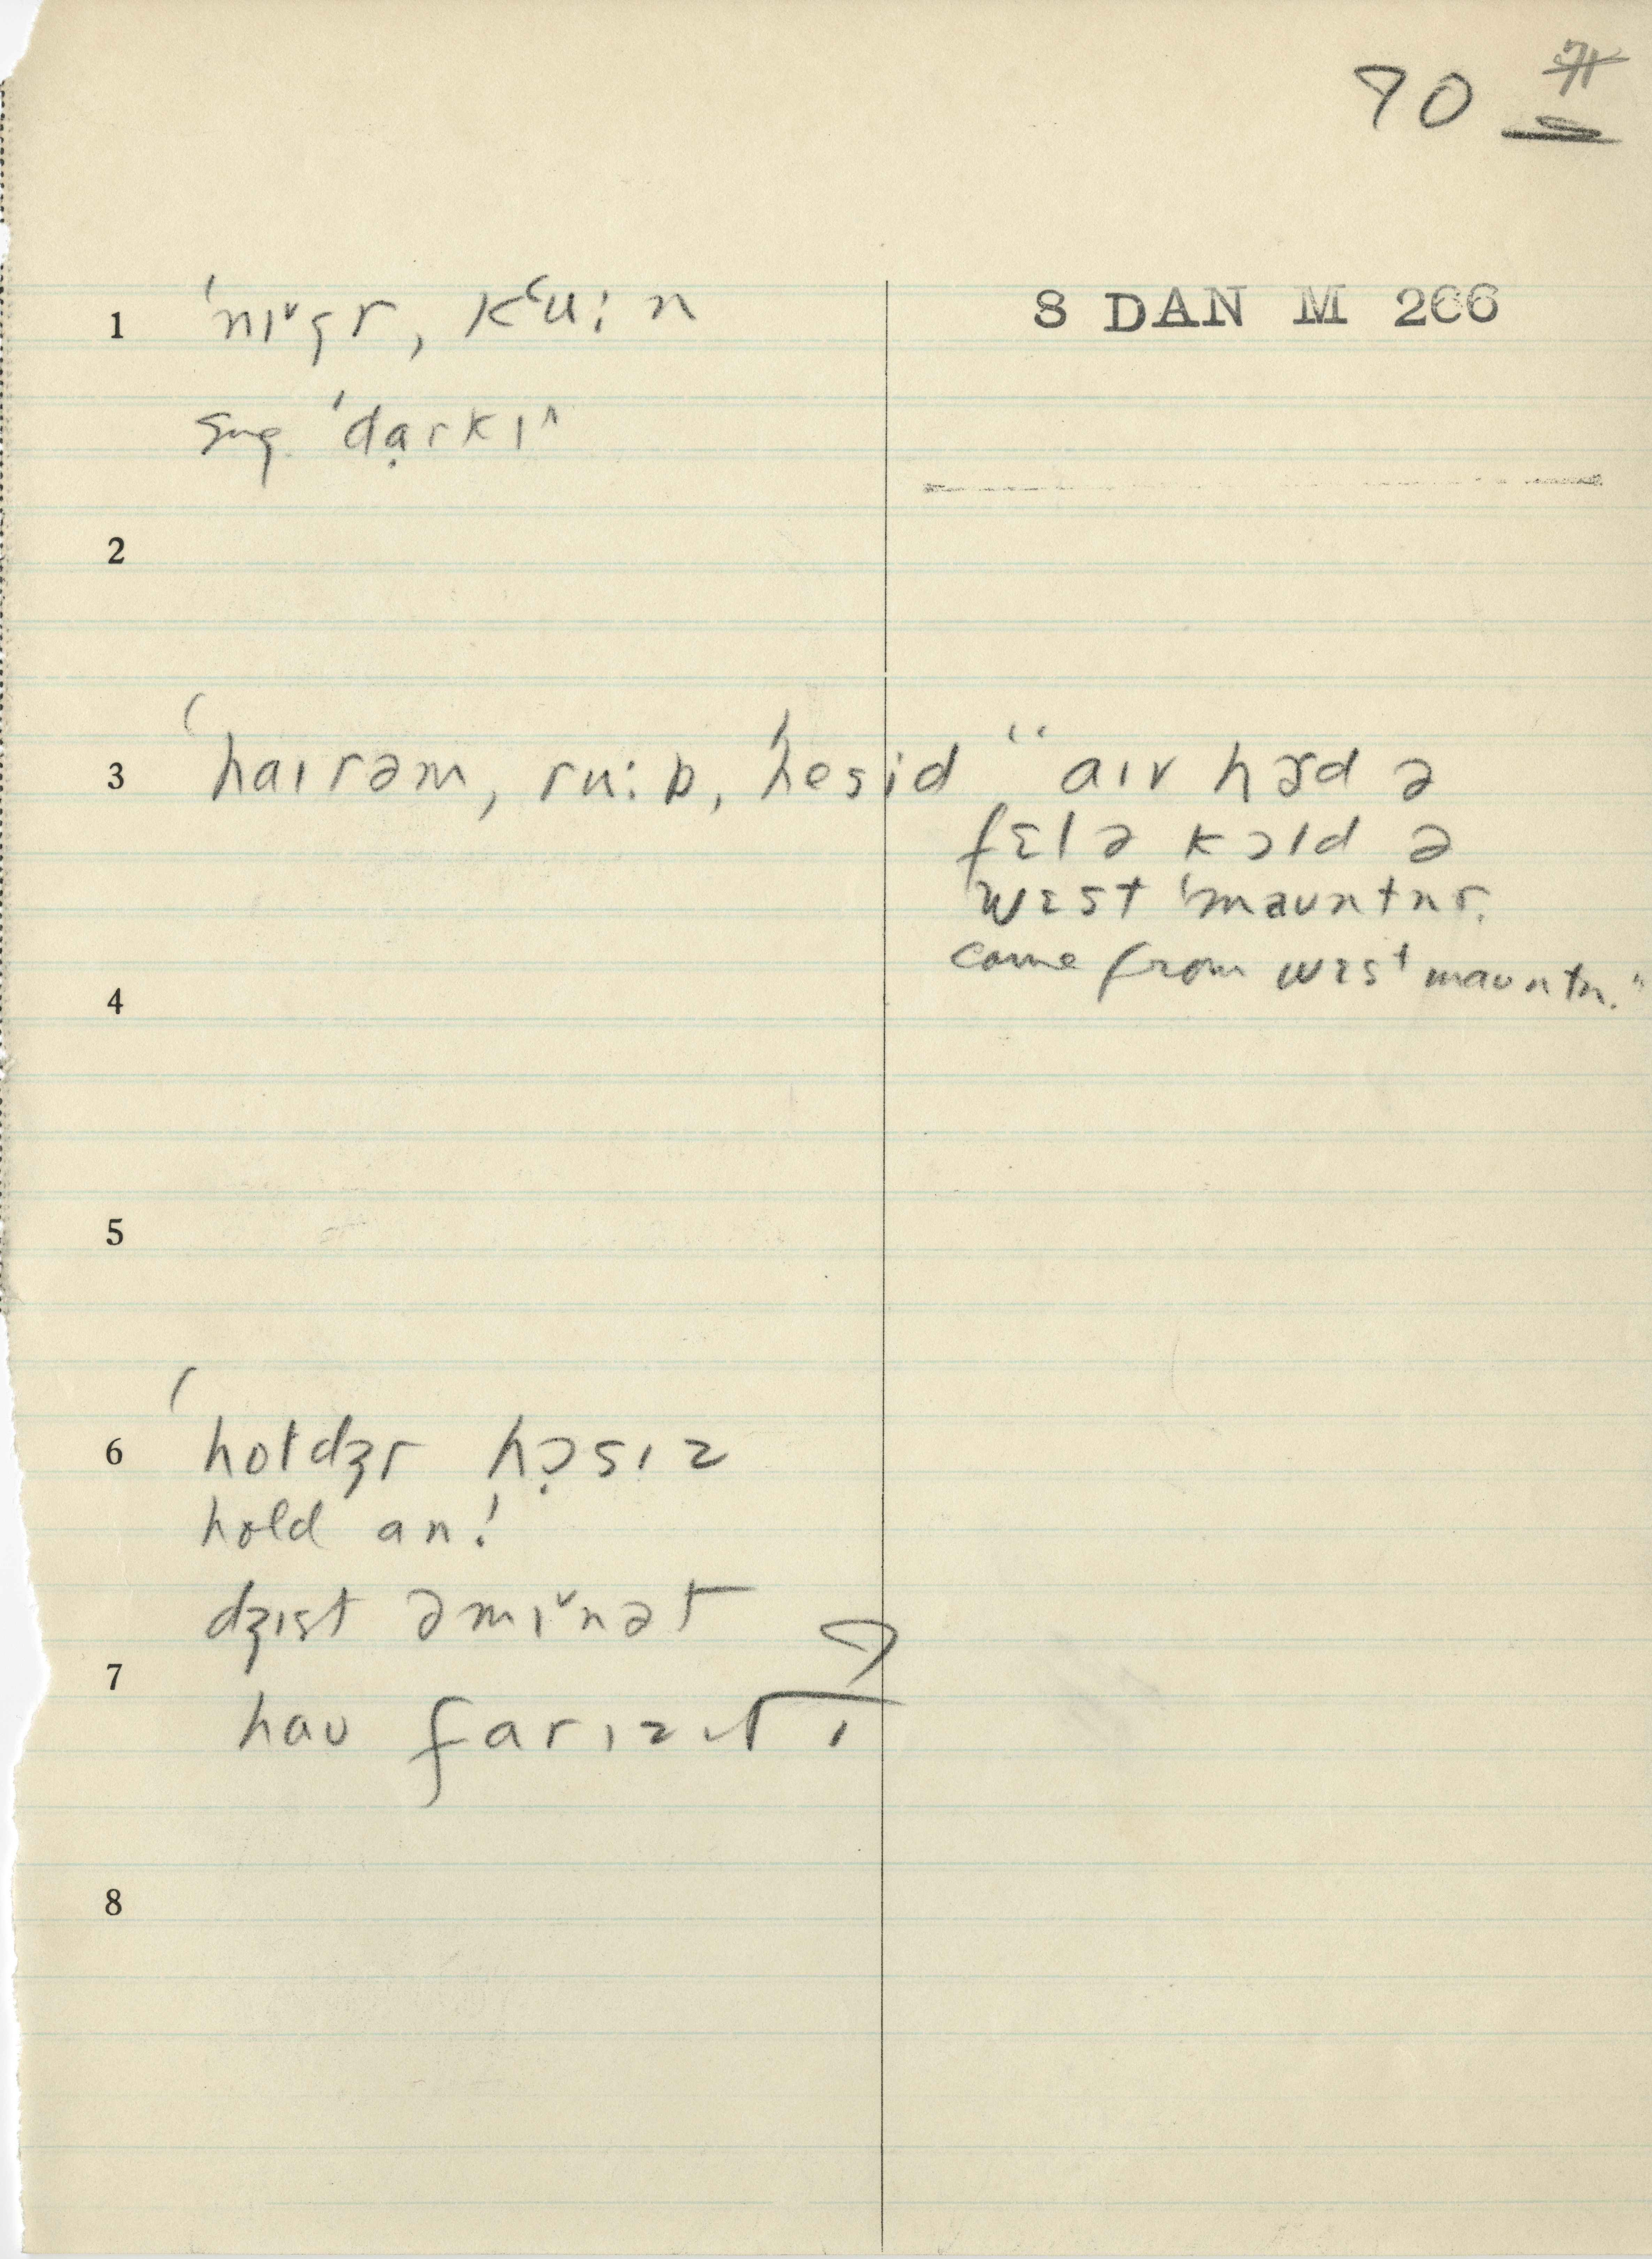 70
S DAN M 266
1 ˈnɪ˅gr, kʻu:n
sug. ˈdạrkɪ^
2
3 ˈhaɪrəm, ru:b, ˈhesid "aɪv hɜd ə
fɛlə kɔld ə
wɛst ˈmauntnr.
come from wɛst mauntn."
4
5
6 hoɫdʒr hɔ̣sɪz
hold an!
dʒɪst əmɪ˅nət
7
hau far ɪz ɪt?
8